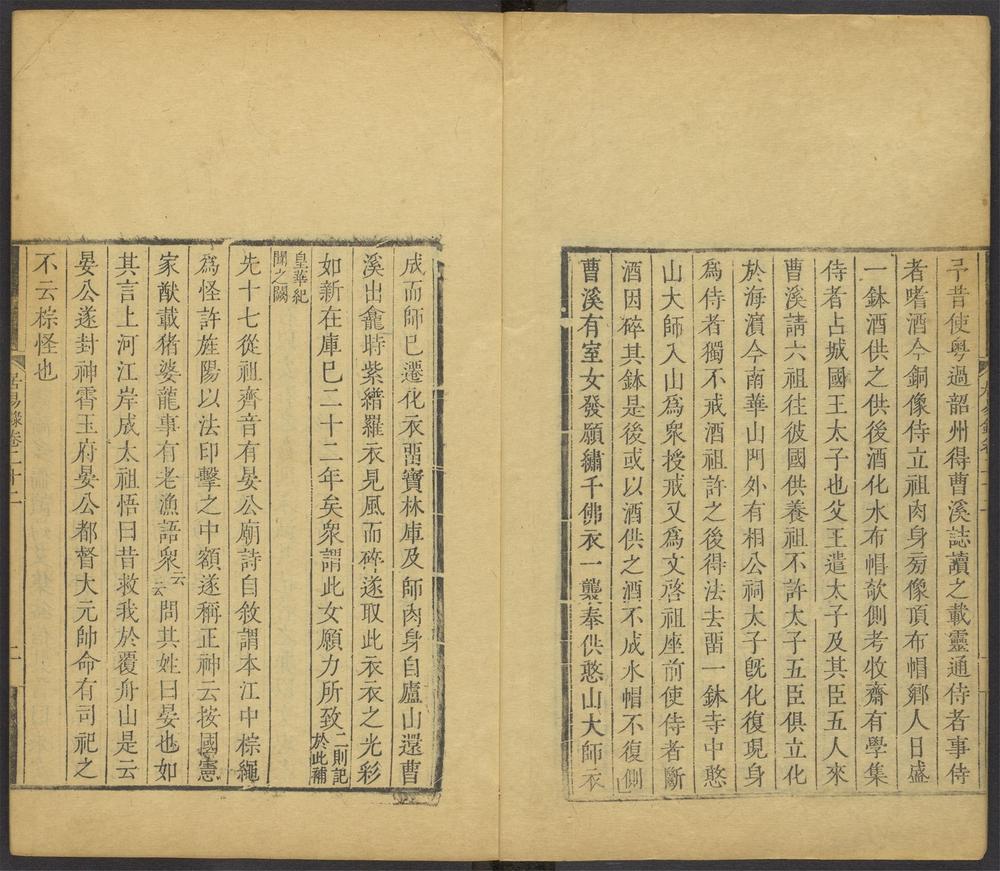 予昔使粵過韶州得曹溪誌讀之載靈通侍者事侍
者嗜酒今銅像侍立祖肉身旁像頂布帽鄉人日盛
一鉢酒供之供後酒化水布帽欹側考牧齋有學集
侍者占城國王太子也父王遣太子及其臣五人來
曹溪請六祖往彼國供養祖不許太子五臣俱立化
於海濵今南華山門外有相公祠太子旣化復現身
爲侍者獨不戒酒祖許之後得法去畱一鉢寺中憨
山大師入山爲衆授戒又爲文啓祖座前使侍者斷
酒因碎其鉢是後或以酒供之酒不成水帽不復側
曹溪有室女發願繡千佛衣一襲奉供憨山大師衣
成而師已遷化衣畱寶林庫及師肉身自廬山還曹
溪出龕時紫縉羅衣見風而碎遂取此衣衣之光彩
如新在庫巳二十二年矣衆謂此女願力所致二則記於此補
皇華紀聞之闕
先十七從祖齊音有晏公廟詩自敘謂本江中棕繩
爲怪許旌陽以法印擊之中額遂稱正神云按國憲
家猷載猪婆龍事有老漁語衆云云問其姓曰晏也如
其言上河江岸成太祖悟曰昔救我於覆舟山是云
晏公遂封神霄玉府晏公都督大元帥命有司祀之
不云棕怪也
居易錄卷二十二
二